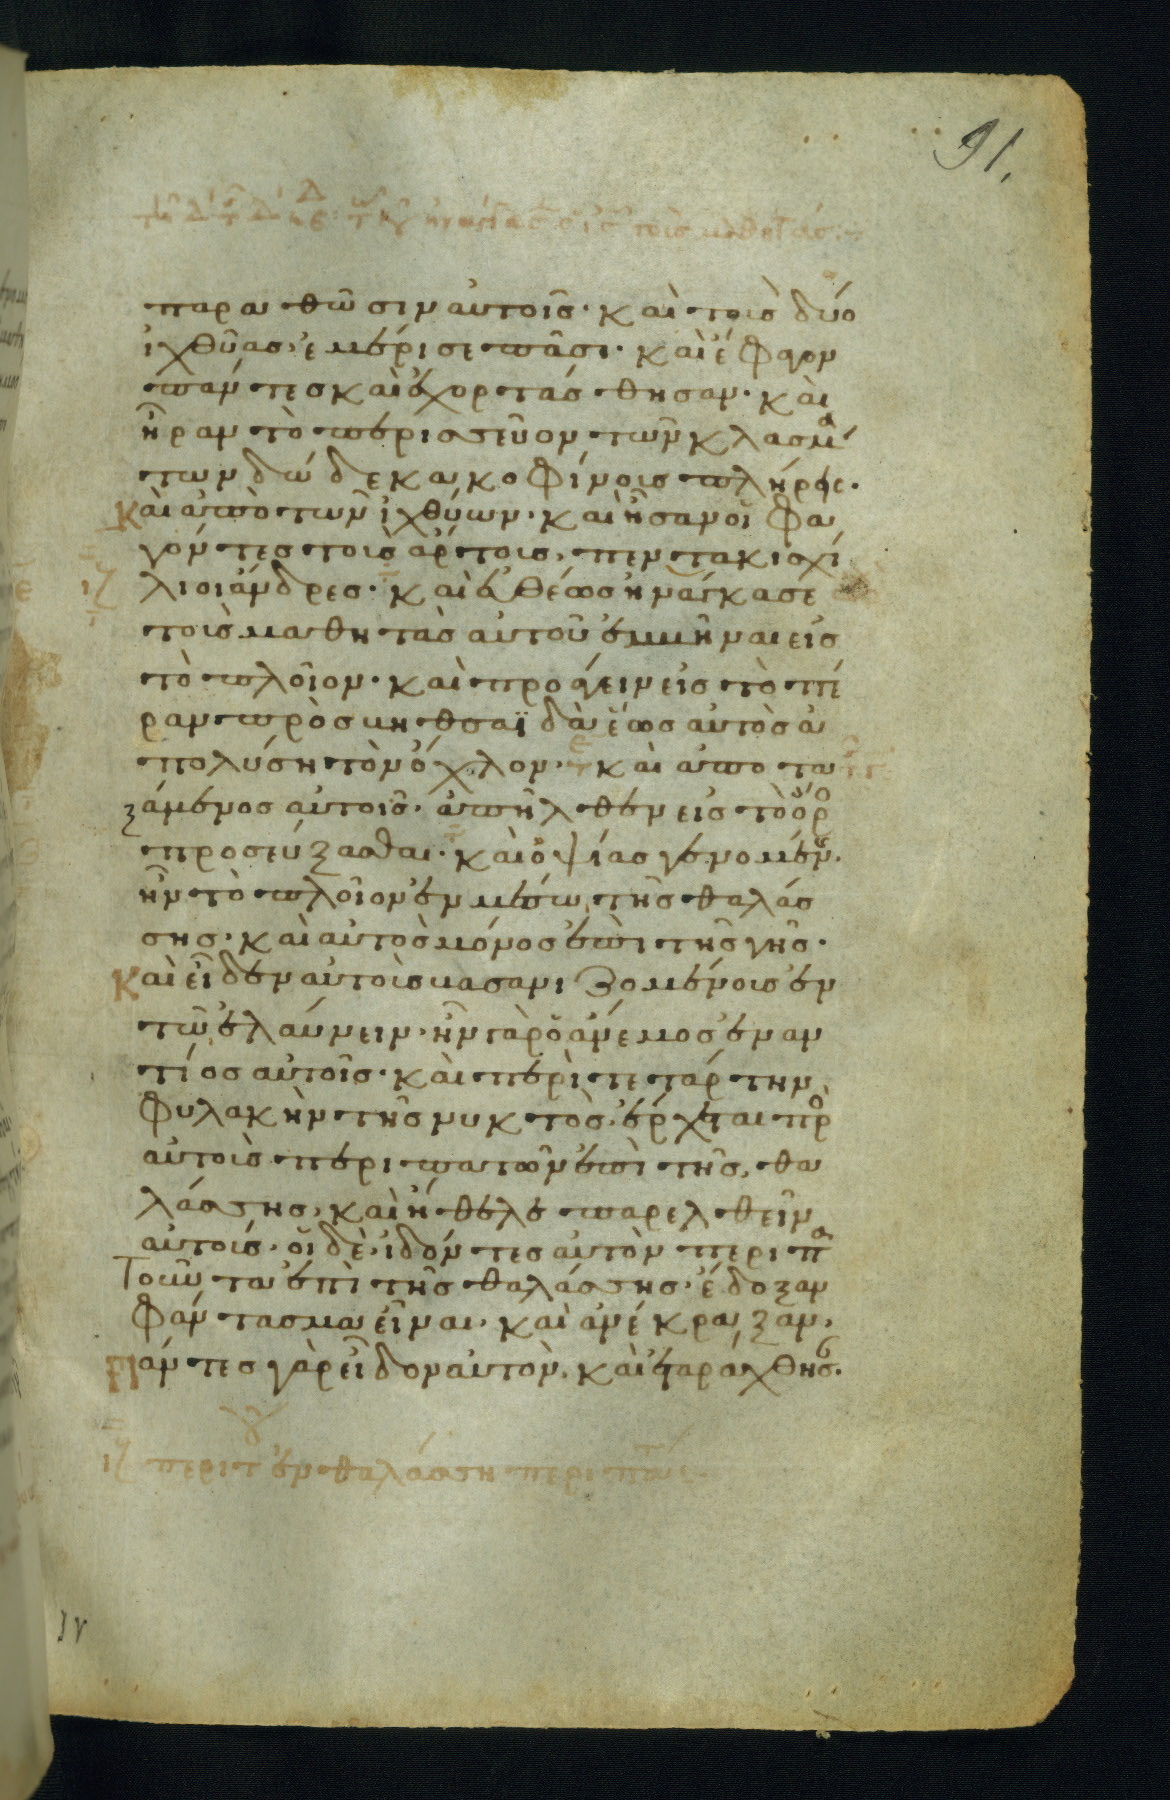 91.
παραθῶσιν αὐτοῖς· καὶ τοὺς δύο
ἰχθύας ἐμέρισε πᾶσι· καὶ ἔφαγον
πάντες καὶ ἐχορτάσθησαν· καὶ
ἦραν τὸ περισσεῦον τῶν κλασμά
των δώδεκα κοφίνους πλήρεις·
Καὶ ἀπὸ τῶν ἰχθύων· καὶ ἦσαν οἱ φα
γόντες τοὺς ἄρτους, πεντακισχί
λιοι ἄνδρες· καὶ εὐθέως ἠνάγκασε
τοὺς μαθητὰς αὐτοῦ ἐμβῆναι εἰς
τὸ πλοῖον· καὶ προάγειν εἰς τὸ πέ
ραν πρὸς βηθσαϊδὰ ἕως αὐτὸς ἀ
πολύση τὸν ὄχλον· καὶ ἀποτα
ξάμενος αὐτοῖς· ἀπῆλθεν εἰς τὸ ὄρο
προσεύξασθαι· καὶ ὀψίας γενομέν
ἦν τὸ πλοῖον ἐν μέσω τῆς θαλάσ
σης· καὶ αὐτὸς μόνος ἐπὶ τῆς γῆς·
Καὶ εἶδεν αὐτοὺς βασανιζομένους ἐν
τῶ ἐλαύνειν· ἦν γὰρ ὁ ἄνεμος ἐναν
τίος αὐτοῖς· καὶ περὶ τετάρτην
φυλακὴν τῆς νυκτὸς ἔρχεται πρὸ
αὐτοὺς περιπατῶν ἐπὶ τῆς θα
λάσσης, καὶ ἤθελε παρελθεῖν
αὐτούς· οἱ δὲ ἰδόντες αὐτὸν περιπα
τοῦντα ἐπὶ τῆς θαλάσσης· ἔδοξαν
φάντασμα εἶναι· καὶ ἀνέκραξαν·
Πάντες γὰρ εἶδον αὐτὸν· καὶ ἐταράχθησ·
ιζ περὶ τ ἐν θαλάσση περιπάτ